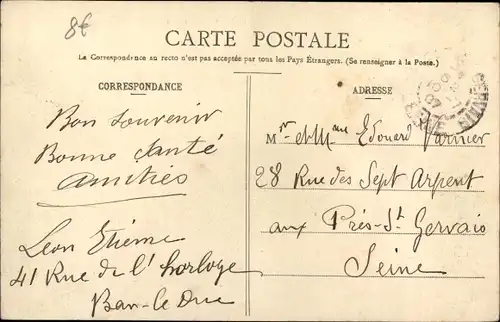 8€
CARTE POSTALE
La Correspondance au recto n'est pas acceptée par tous les Pays Étrangers. (Se renseigner à la Poste.)
CORRESPONDANCE
Bon souvenir
Bonne santé
amitiés
Léon Etième
41 Rue de l'horloge
Bar-le Duc
ADRESSE
Mr et Mme Edouard Varnier
28 Rue des Sept Arpent
aux Prés-St Gervais
Seine